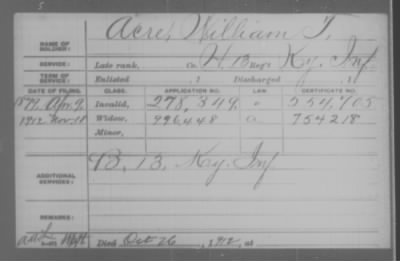 5
NAME OF SOLDIER: Acre, William T.
SERVICE: Late rank, Co. H, 13 Reg't Ky. Inf.
TERM OF SERVICE: Enlisted , 1 Discharged , 1
DATE OF FILING. CLASS. APPLICATION NO. LAW. CERTIFICATE NO.
1879, Apr. 9. Invalid, 278,349 " 554,705
1912 Nov. 18 Widow, 996,448 a 754218
Minor,
ADDITIONAL SERVICES: B. 13. Ky. Inf
REMARKS:
Died Oct 26, 1912, at